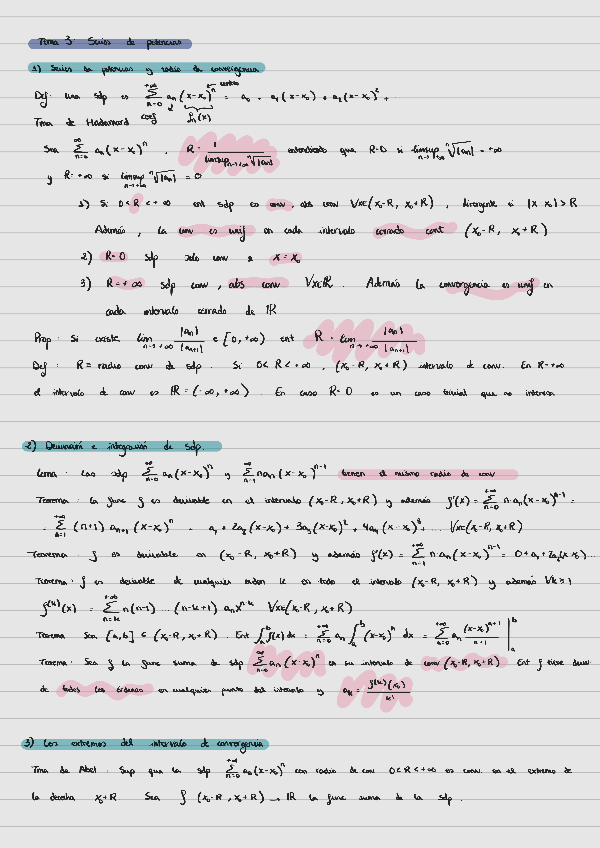 Tema 3: Series de potencias
1) Series de potencias y radio de convergencia
Def: una sdp es $\sum_{n=0}^{+\infty} a_n (x-x_0)^n$ = a_0 + a_1(x-x_0) + a_2(x-x_0)^2 + centro
Tma de Hadamard coef f_n(x)
Sea $\sum_{n=0}^{\infty} a_n(x-x_0)^n$, $R = \frac{1}{\limsup_{n\to+\infty} \sqrt[n]{|a_n|}}$ entendiendo que R=0 si $\limsup_{n\to+\infty} \sqrt[n]{|a_n|} = +\infty$
y R=+∞ si $\limsup_{n\to+\infty} \sqrt[n]{|a_n|} = 0$
1) Si 0<R<+∞ ent sdp es conv, abs conv ∀x∈(x_0-R, x_0+R), divergente si |x-x_0|>R
Además, la conv es unif en cada intervalo cerrado cont (x_0-R, x_0+R)
2) R=0 sdp solo conv x x=x_0
3) R=+∞ sdp conv, abs conv ∀x∈ℝ. Además la convergencia es unif en
cada intervalo cerrado de ℝ
Prop: Si existe $\lim_{n\to+\infty} \frac{|a_n|}{|a_{n+1}|}$ ∈ [0,+∞) ent $R = \lim_{n\to+\infty} \frac{|a_n|}{|a_{n+1}|}$
Def: R = radio conv de sdp. Si 0<R<+∞, (x_0-R, x_0+R) intervalo de conv. En R=+∞
el intervalo de conv es ℝ=(-∞,+∞). En caso R=0 es un caso trivial que no interesa
2) Derivación e integración de sdp.
Lema: Las sdp $\sum_{n=0}^{+\infty} a_n(x-x_0)^n$ y $\sum_{n=1}^{+\infty} n a_n(x-x_0)^{n-1}$ tienen el mismo radio de conv
Teorema: la func f es derivable en el intervalo (x_0-R, x_0+R) y además $f'(x) = \sum_{n=0}^{+\infty} n·a_n(x-x_0)^{n-1}$ =
= $\sum_{n=1}^{+\infty} (n+1) a_{n+1} (x-x_0)^n$ = a_1 + 2a_2(x-x_0) + 3a_3(x-x_0)^2 + 4a_4(x-x_0)^3 + ... ∀x∈(x_0-R, x_0+R)
Teorema: f es derivable en (x_0-R, x_0+R) y además $f'(x) = \sum_{n=1}^{+\infty} n·a_n(x-x_0)^{n-1}$ = 0+a_1+2a_2(x-x_0)...
Teorema: f es derivable de cualquier orden k en todo el intervalo (x_0-R, x_0+R) y además ∀k≥1
$f^{(k)}(x) = \sum_{n=k}^{+\infty} n(n-1) ... (n-k+1) a_n x^{n-k}$ ∀x∈(x_0-R, x_0+R)
Teorema Sea [a,b] ⊆ (x_0-R, x_0+R). Ent $\int_a^b f(x)dx = \sum_{n=0}^{+\infty} a_n \int_a^b (x-x_0)^n dx = \sum_{n=0}^{+\infty} a_n \frac{(x-x_0)^{n+1}}{n+1} \Big|_a^b$
Teorema: Sea f la func suma de sdp $\sum_{n=0}^{+\infty} a_n(x-x_0)^n$ en su intervalo de conv (x_0-R, x_0+R) Ent f tiene deriv
de todos los órdenes en cualquier punto del intervalo y $a_k = \frac{f^{(k)}(x_0)}{k!}$
3) Los extremos del intervalo de convergencia
Tma de Abel: Sup que la sdp $\sum_{n=0}^{+\infty} a_n(x-x_0)^n$ con radio de conv 0<R<+∞ es conv. en el extremo de
la derecha x_0+R. Sea f (x_0-R, x_0+R) → ℝ la func suma de la sdp.